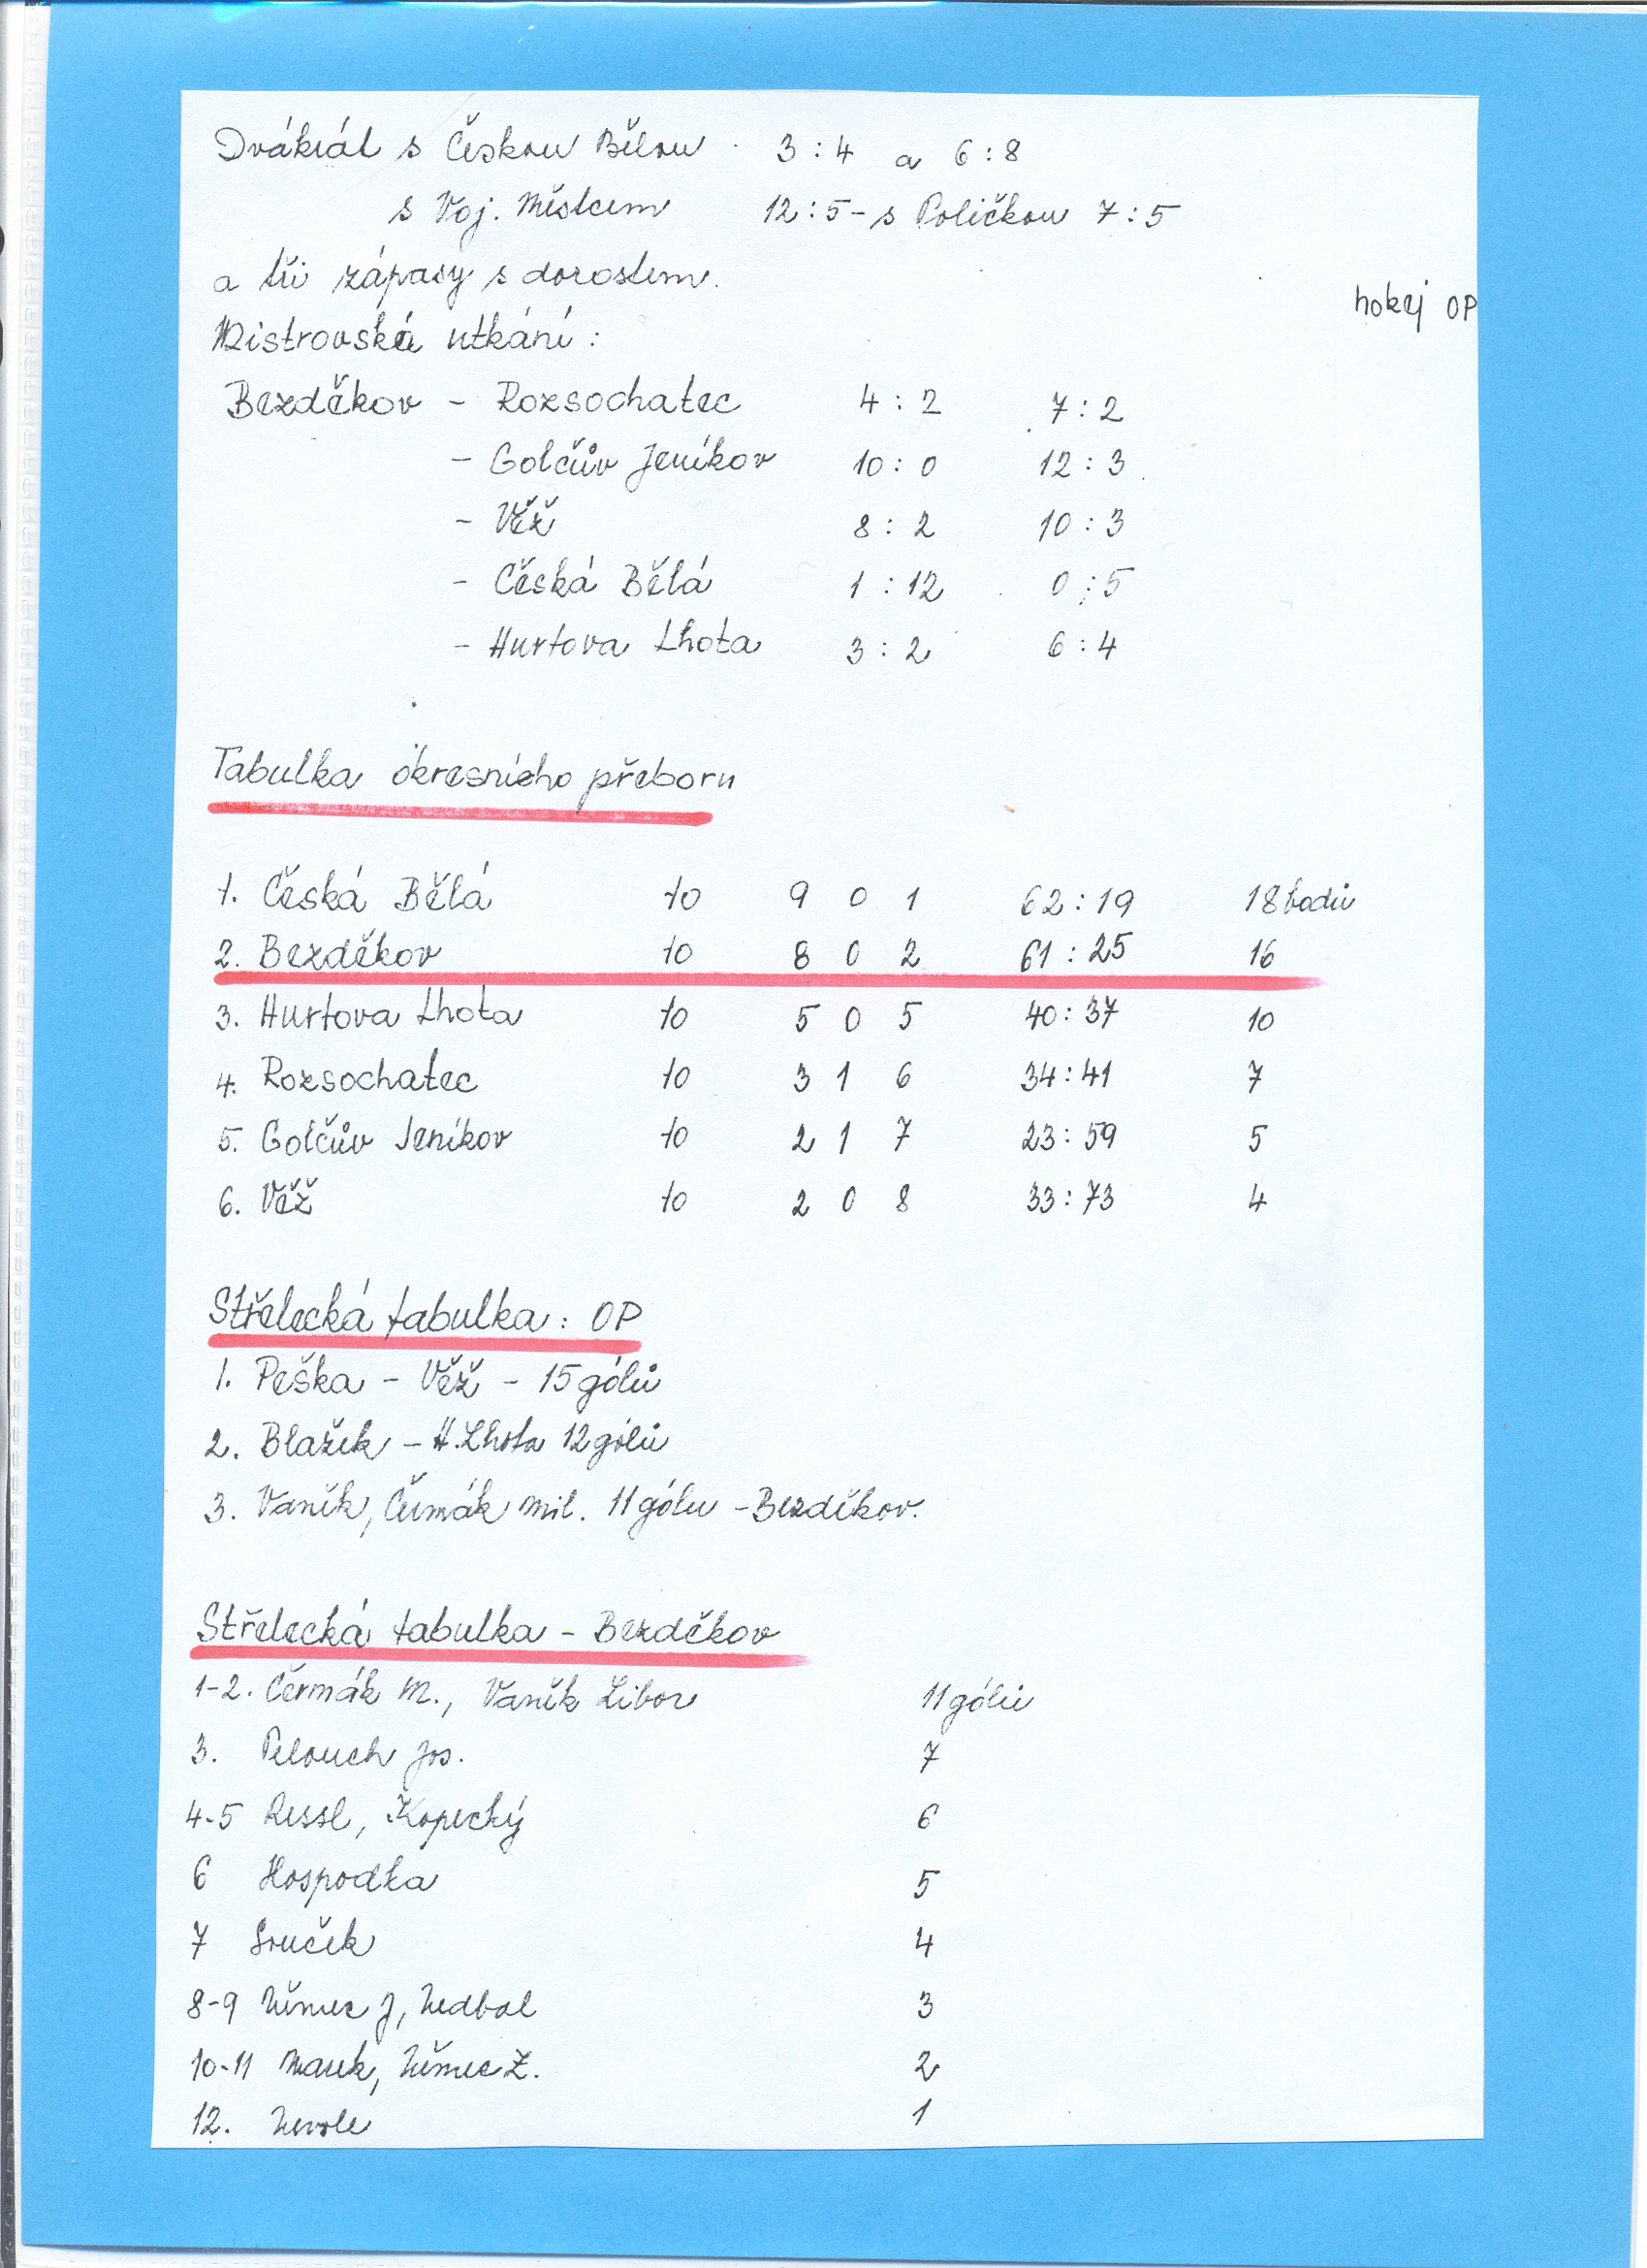 Dvákrát s Českou Bělou 3:4 a 6:8
s Voj. Městcem 12:5 - s Poličkou 7:5
a tři zápasy s dorostem.
hokej OP
Mistrovská utkání:
Bezděkov - Rozsochatec 4:2 7:2
- Golčův Jeníkov 10:0 12:3
- Věž 8:2 10:3
- Česká Bělá 1:12 0:5
- Hurtova Lhota 3:2 6:4
Tabulka okresního přeboru
1. Česká Bělá 10 9 0 1 62:19 18 bodů
2. Bezděkov 10 8 0 2 61:25 16
3. Hurtova Lhota 10 5 0 5 40:37 10
4. Rozsochatec 10 3 1 6 34:41 7
5. Golčův Jeníkov 10 2 1 7 23:59 5
6. Věž 10 2 0 8 33:73 4
Střelecká tabulka: OP
1. Peška - Věž - 15 gólů
2. Blažek - H. Lhota 12 gólů
3. Vaněk, Čermák Mil. 11 gólu - Bezděkov.
Střelecká tabulka - Bezděkov
1-2. Čermák M., Vaněk Libor 11 gólů
3. Pelouch Jos. 7
4-5 Ressl, Kopecký 6
6 Hospodka 5
7 Souček 4
8-9 Němec J, Nedbal 3
10-11 Marek, Němec Z. 2
12. 1